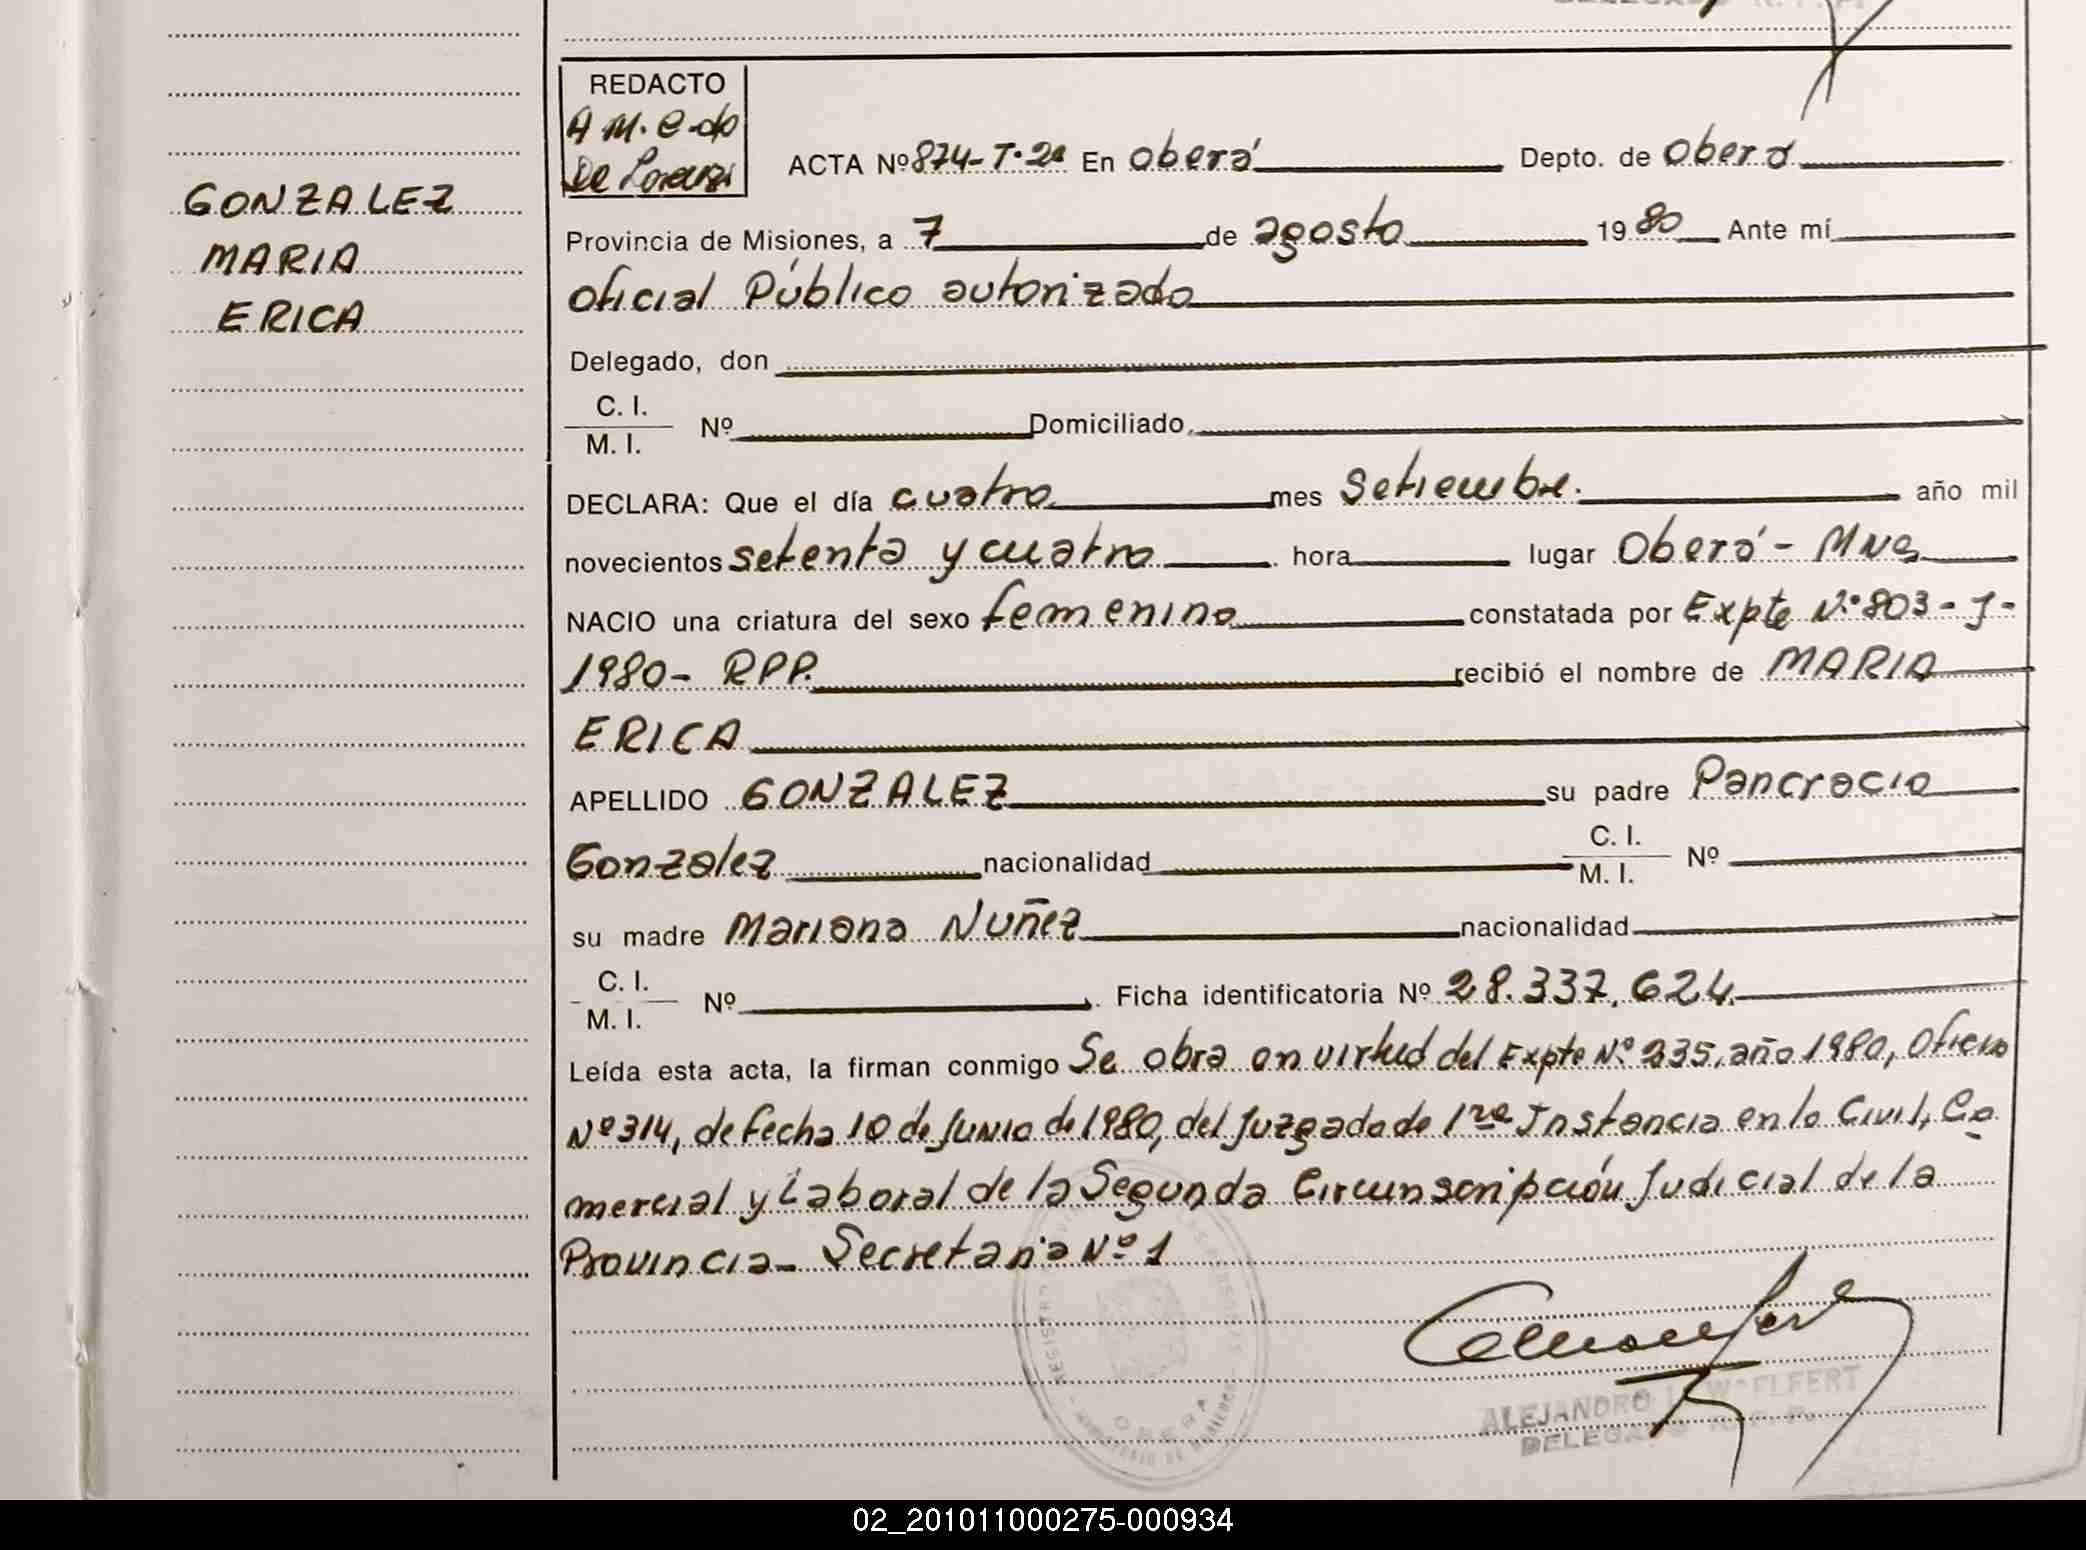 GONZALEZ
MARIA
ERICA
REDACTO
A M. C. do
De Lorenzi
ACTA Nº 874-T.2º En Oberá Depto. de Oberá
Provincia de Misiones, a 7 de agosto 1980 Ante mí
oficial Público autorizado
Delegado, don
C. I.
M. I. Nº Domiciliado
DECLARA: Que el día cuatro mes Setiembre. año mil
novecientos setenta y cuatro hora lugar Oberá - Mnes
NACIO una criatura del sexo femenino constatada por Expte Nº 803 - J -
1980 - RPP. recibió el nombre de MARIA
ERICA
APELLIDO GONZALEZ su padre Pancracio
Gonzalez nacionalidad C. I.
M. I. Nº
su madre Mariana Nuñez nacionalidad
C. I.
M. I. Nº Ficha identificatoria Nº 28.337.624.
Leída esta acta, la firman conmigo Se obra en virtud del Expte Nº 235, año 1980, Oficio
Nº 314, de fecha 10 de Junio de 1980, del Juzgado de 1ra Instancia en lo Civil, Co
mercial y Laboral de la Segunda Circunscripción Judicial de la
Provincia - Secretaria Nº 1
REGISTRO
OBERA
ALEJANDRO
DELEGADO
02_201011000275-000934